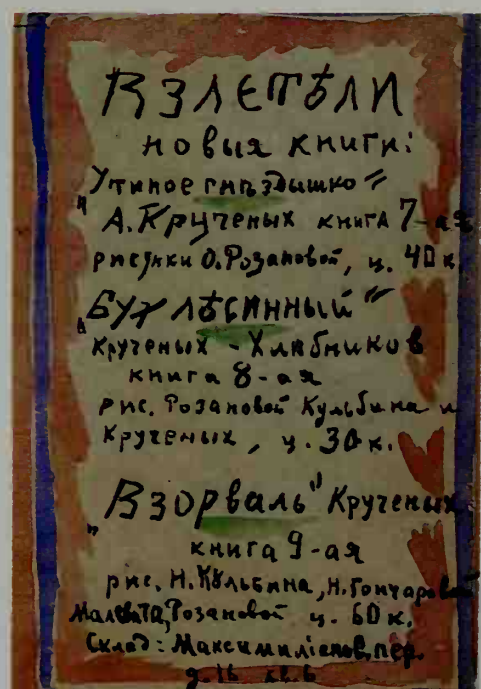 ВЗЛЕТѢЛИ
новыя книги:
Утиное гнѣздышко"
" А. Крученых книга 7-ая
рисунки О. Розановой, ц. 40 к.
"БУХ ЛѢСИННЫЙ"
Крученых - Хлебников
книга 8-ая
рис. Розановой Кульбина и
Крученых, ц. 30 к.
"Взорваль" Крученых
книга 9-ая
рис. Н. Кульбина, Н. Гончаровой
Малевича, Розановой ц. 60 к.
Склад: Максимилiановпер.
д. 16 кв. 6